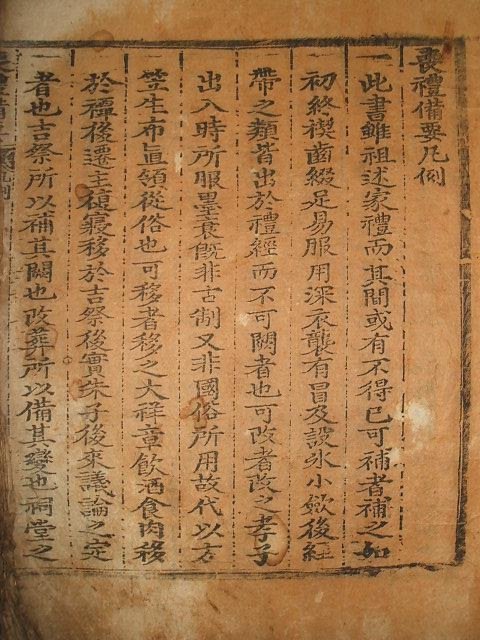 喪禮備要凡例
一此書雖祖述家禮而其間或有不得已可補者補之如
初終楔齒綴足易服用深衣襲有冒及設氷小斂後絰
帶之類皆出於禮經而不可闕者也可改者改之孝子
出入時所服墨衰旣非古制又非國俗所用故代以方
笠生布直領從俗也可移者移之大祥章飮酒食肉移
於禫後遷主復寢移於吉祭後實朱子後來議論之定
者也吉祭所以補其闕也改葬所以備其變也祠堂之